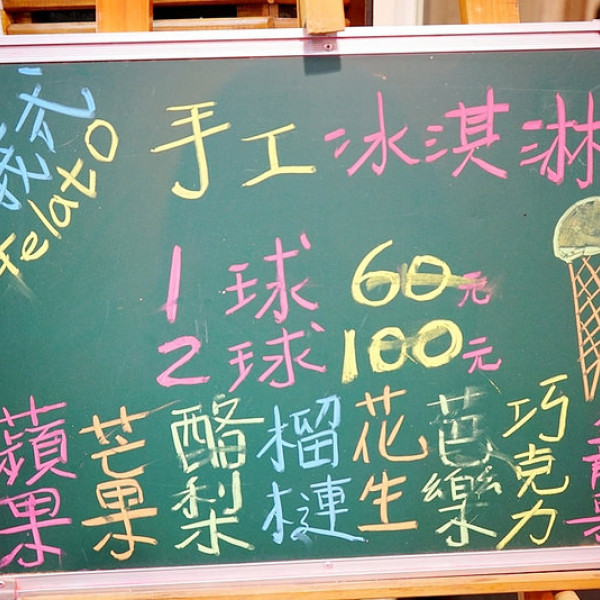 gelato
手工冰淇淋
1球 60元
2球 100元
蘋果
芒果
酪梨
榴槤
花生
芭樂
巧克力